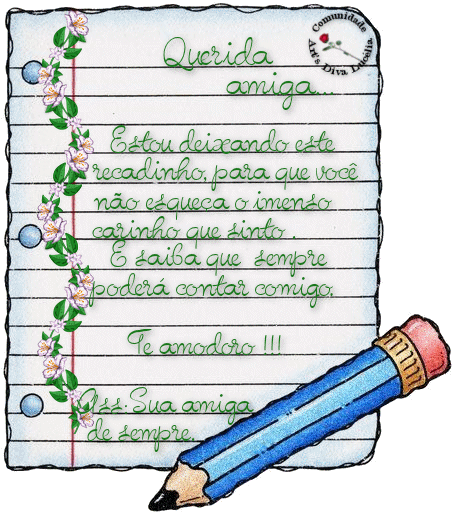 Comunidade
Art's Diva Lucélia
Querida
amiga...
Estou deixando este
recadinho, para que você
não esqueça o imenso
carinho que sinto .
E saiba que sempre
poderá contar comigo.
Te amodoro !!!
Ass: Sua amiga
de sempre.